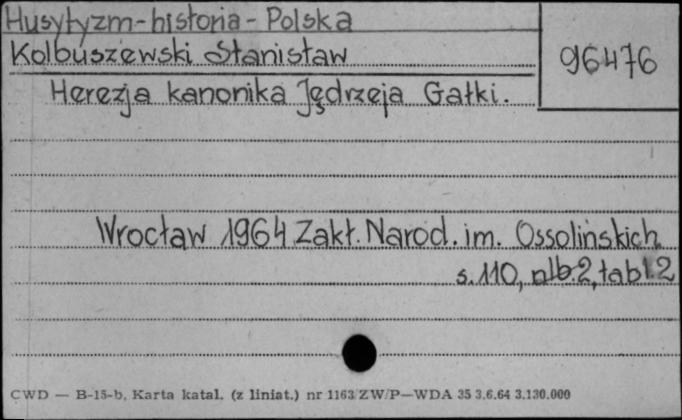 Husytyzm-historia-Polska
Kolbuszewski Stanisław
96476
Herezja kanonika Jędrzeja Gałki.
Wrocław 1964 Zakł. Narod. im. Ossolińskich
s. 110, nlb. 2, tabl. 2
CWD — B-15-b, Karta katal. (z liniat.) nr 1163 ZW/P—WDA 35 3.6.64 3.130.000